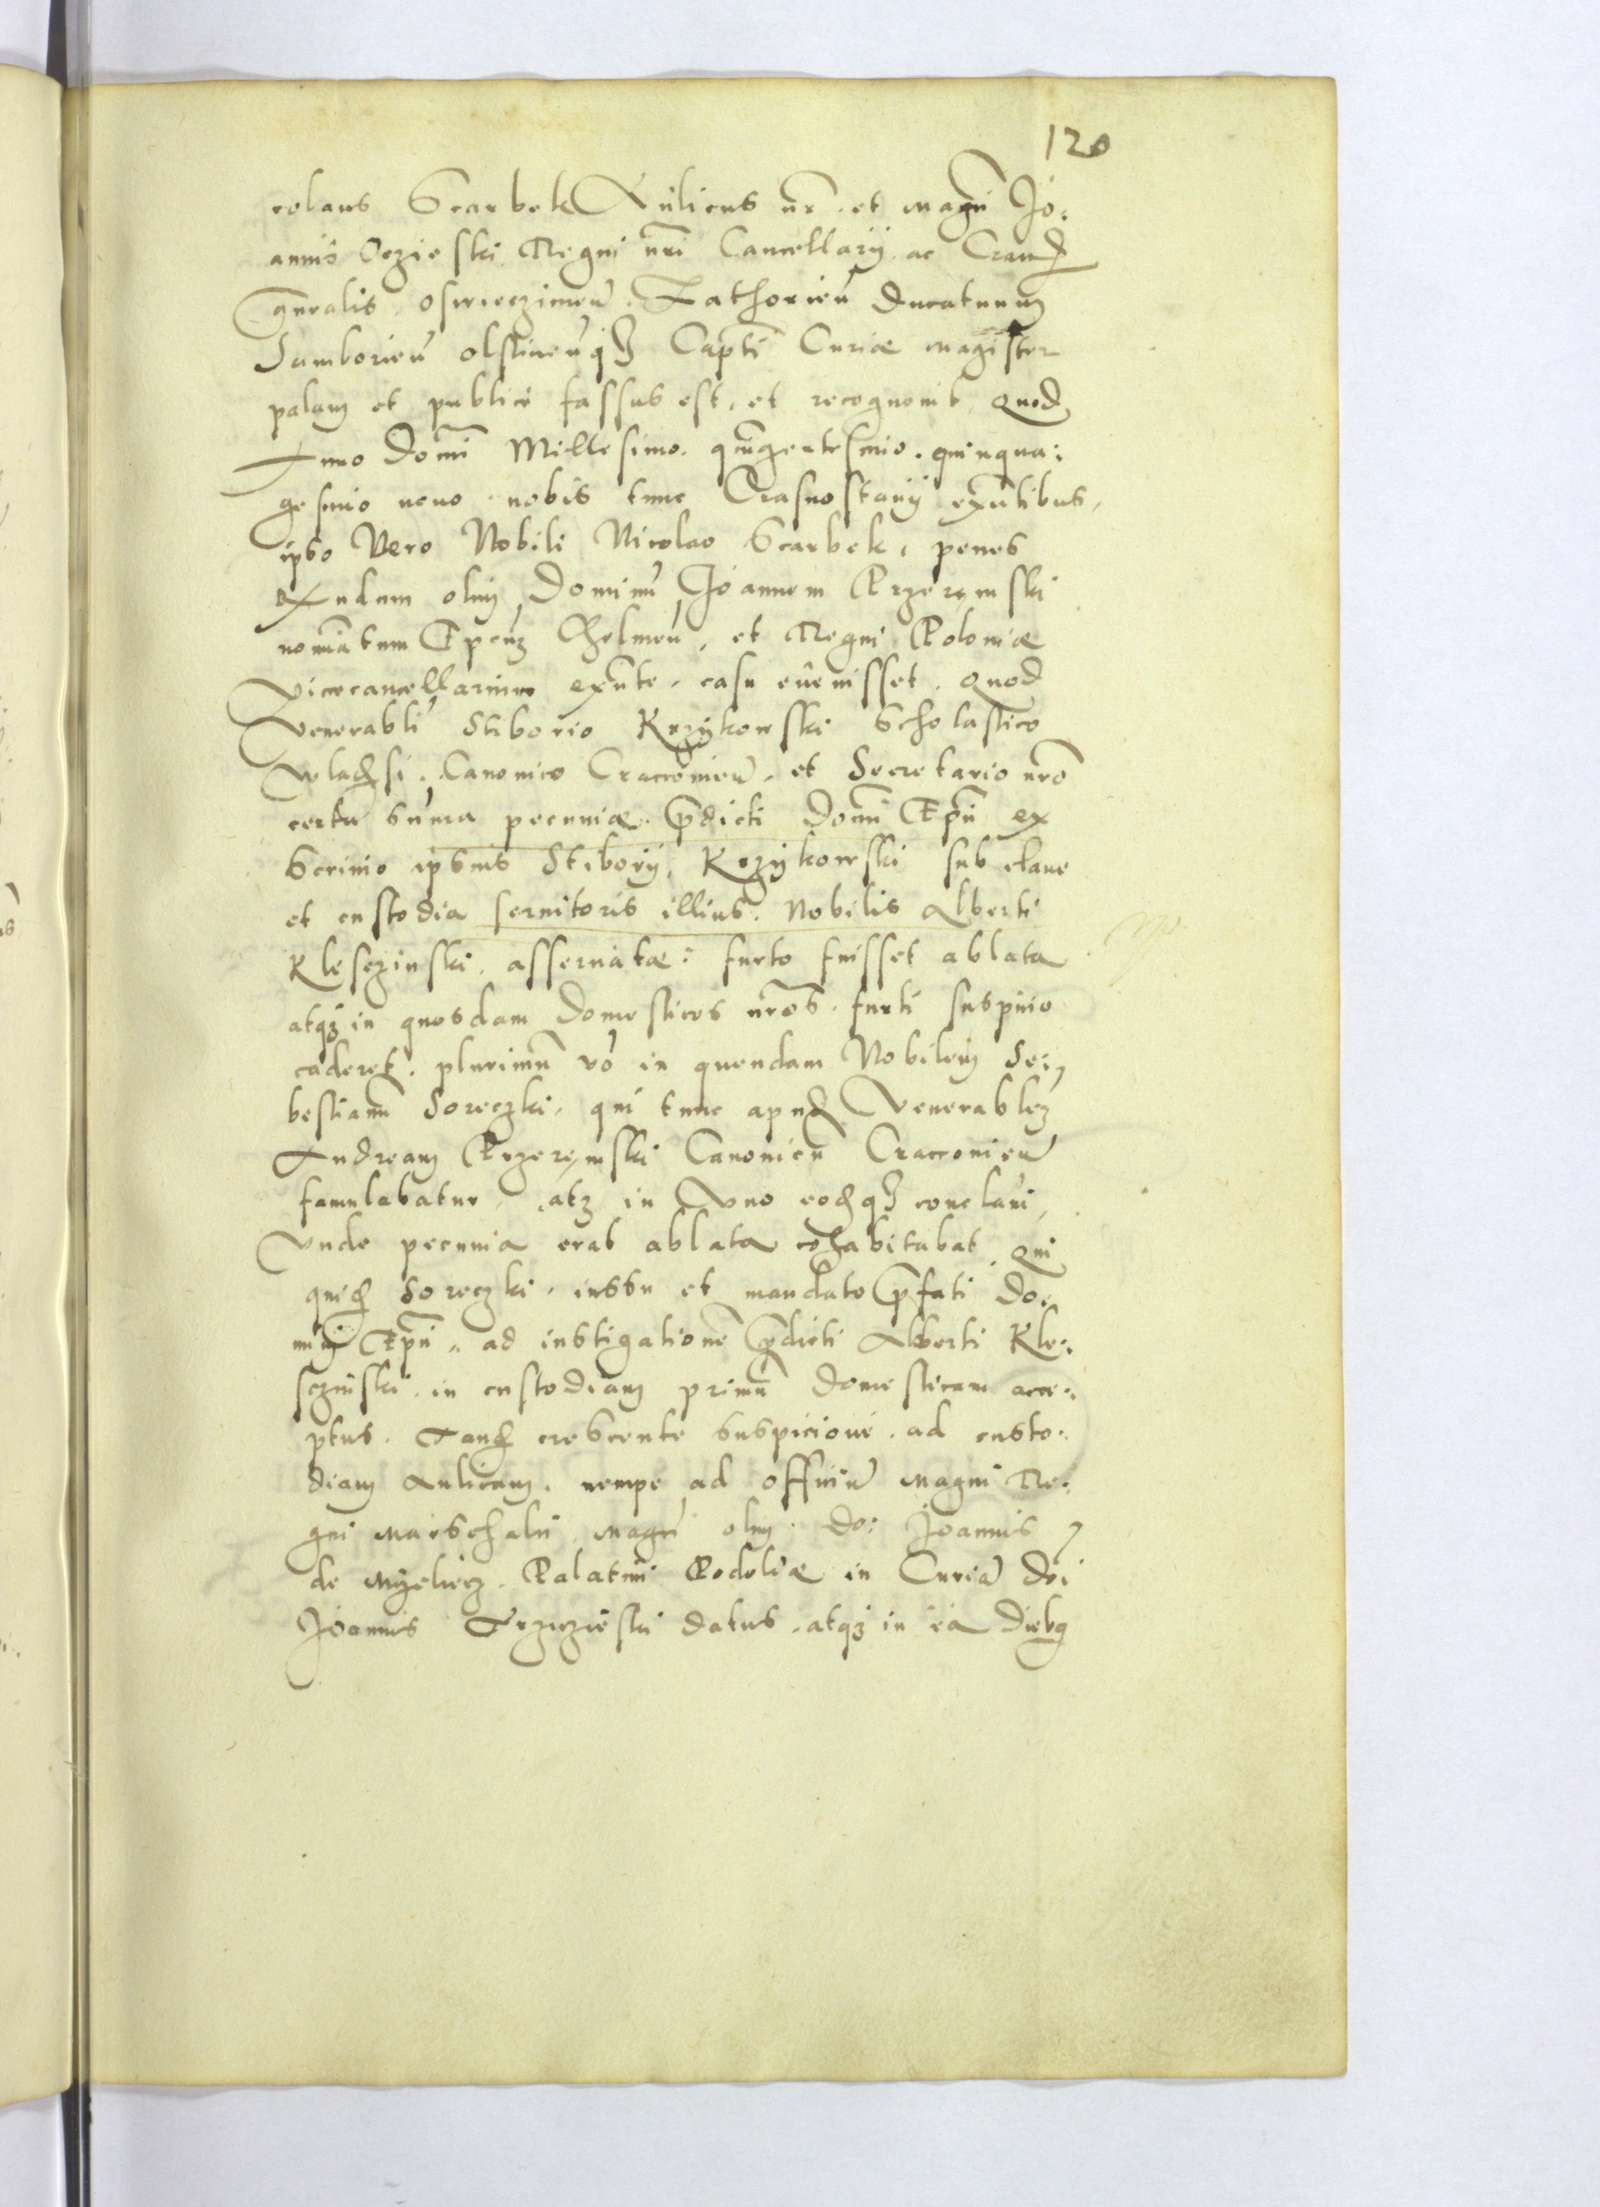 120
colaus Scarbek Aulicus nr̄. et Magn̄ Jo:
annis Oczieski Regni nr̄i Cancellarij. ac Craco̅
Gn̄ralis. Oswieczimen̄. Zathorien̄ Ducatuum
Samborien̄ Olstinen̄q₃ Capt̄i Curiæ magister
palam et publicè fassus est, et recognouit, Quod
Anno Domī Millesimo. quīgentesimo. quinqua:
gesimo nono. nobis tunc Crasnostauij exn̄tibus,
ipso Vero Nobili Nicolao Scarbek, penes
Rn̄dum olim Dominū Joannem Przerembski
nomīatum Epūm Chelmen̄, et Regni Poloniæ
Vicecancellarium exn̄te, casu euenisset. Quod
Venerabli Stiborio Krzykowski Scholastico
Wladsi. Canonico Cracouien̄. et Secretario nr̄o
certa sūma pecuniæ. p̄dicti Domī Epī ex
Scrinio ipsius Stiborij, Krzykowski sub claue
et custodia seruitoris illius. Nobilis Alberti
Klesczinski, asseruatæ: furto fuisset ablata
atq₃ in quosdam Domesticos nr̄os. furti suspicio
caderet. plurimū vō in quendam Nobilem Se:
bestianū Soreczki, qui tunc apud Venerablem
Andream Przerembski Canonicū Cracouien̄
famulabatur, atq₃ in Vno eodq₃ conclaui,
Vnde pecunia erat ablata cohabitabat. Qui
quid Soreczki, iussu et mandato p̄fati Do:
mini Epī, ad instigationē p̄dicti Alberti Kle:
sczinski. in custodiam primū Domesticam acce:
ptus. Tand crescente suspicione. ad custo:
diam Aulicam. nempe ad officiū Magni Re:
gni Marschalci Magcī olim. Do: Joannis
de Myelecz. Palatini Podoliæ in Curiā Dni
Joannis datus. atq₃ in ea Diebq